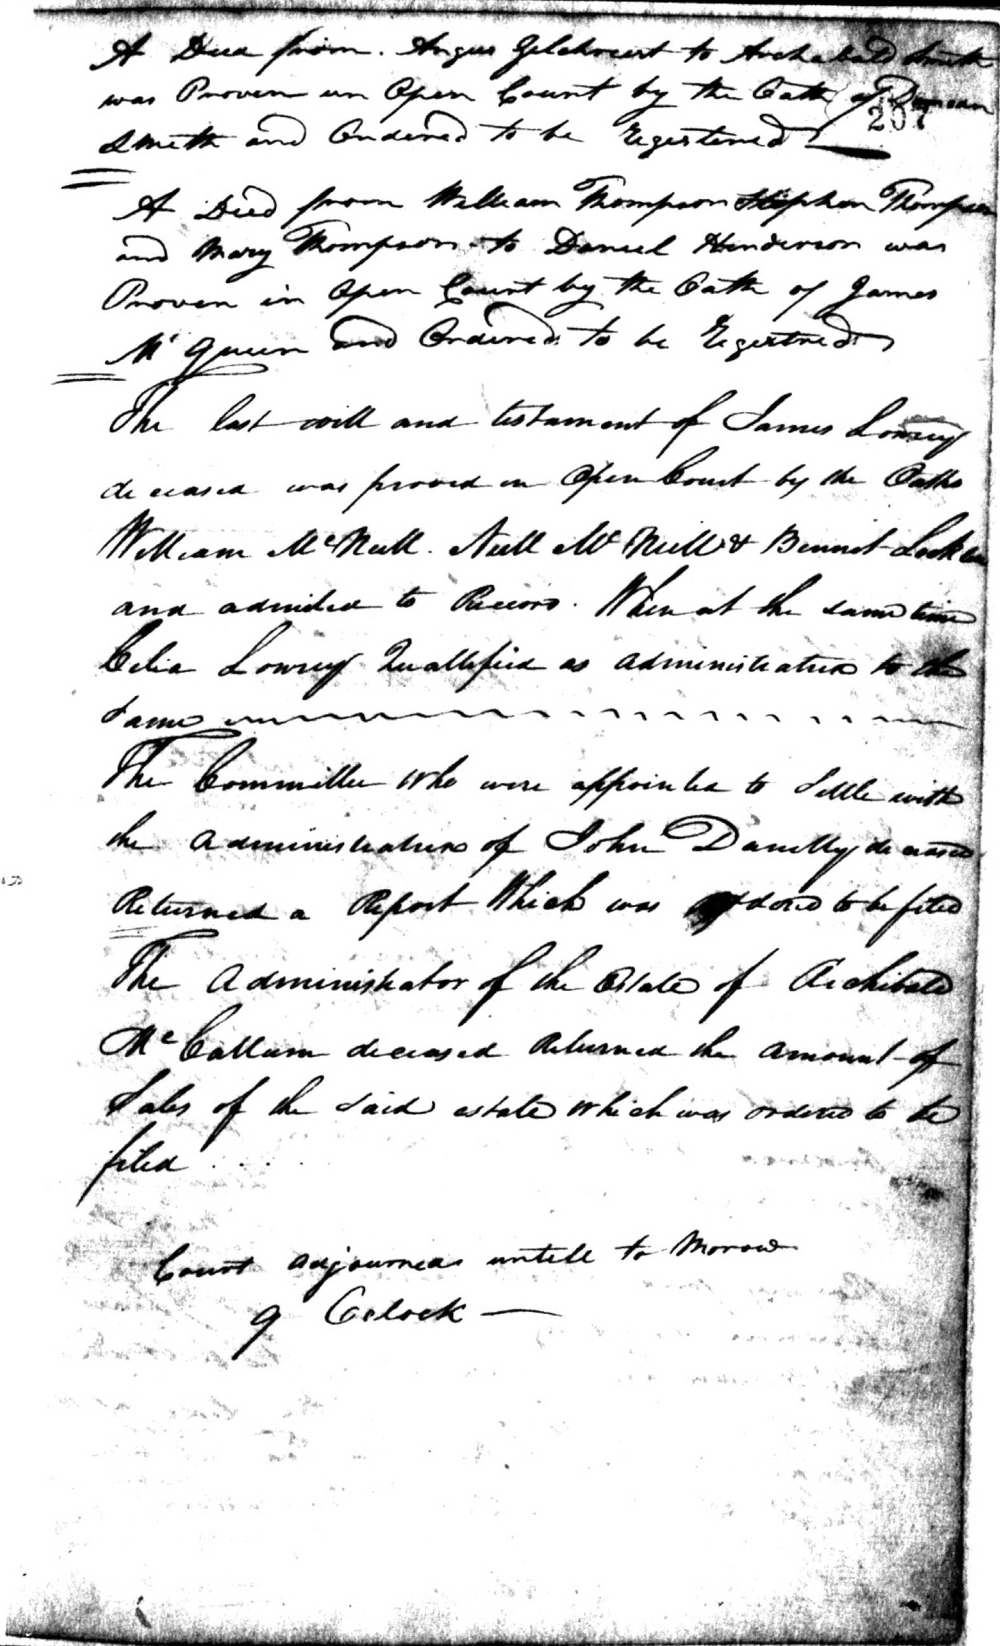 A Deed from Angus Gilchreist to Archabald Smith
was Proven in Open Court by the Oath of Duncan
207
Smith and Ordered to be Regestered
A Deed from William Thompson Stephen Thompson
and Mary Thompson to Daniel Henderson was
Proven in Open Court by the Oath of James
Mc Queen and Ordered to be Regestred
The last will and testament of James Lowrey
deceased was proved in Open Court by the Oaths
William McNeill. Neill Mc Neill & Bennet
and admited to Record. When at the same time
Celia Lowrey Quallified as administratrix to the
Same
The Committee Who were appointed to Settle with
the Administrators of John deceased
Returned a Report Which was ordered to be filed
The Administrator of the Estate of Archibald
McCallum deceased Returned the amount of
Sales of the Said estate which was ordered to be
filed
Court adjourned untill to Morow
9 Oclock